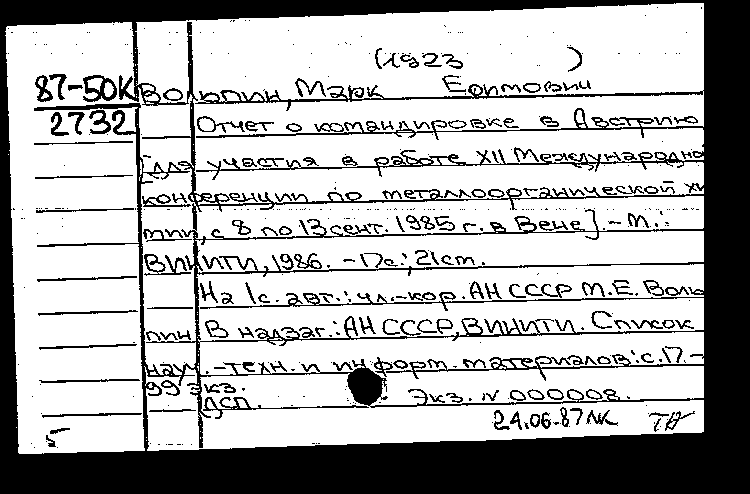 (1923 )
87-50К Вольпин, Марк Ефимович
2732 Отчет о командировке в Австрию
[для участия в работе XII Международно
конференции по металлоорганической хи
мии, с 8 по 13 сент. 1985 г. в Вене]. - М.:
ВИНИТИ, 1986. - 17с.; 21см.
На 1с. авт.: чл.-кор. АН СССР М.Е. Воль
пин. В надзаг.: АН СССР, ВИНИТИ. Список
науч.-техн. и информ. материалов: с.17.-
99 экз.
ДСП. Экз. N 000008.
24.06.87
5